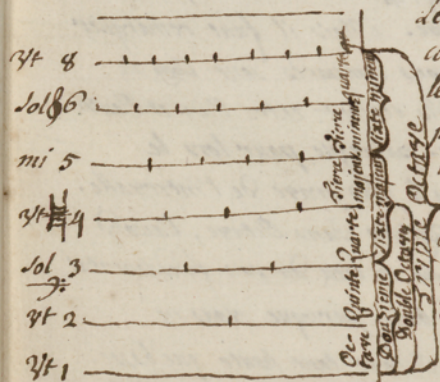 Vt 8
sol 6
mi 5
Vt 4
sol 3
Vt 2
Vt 1
Oc-
tave
Quinte
Quarte
Tierce
majeur
Tierce
mineure
quarte
Sixte mineur
Sixte majeur
Douzieme
Double Octave
Octave